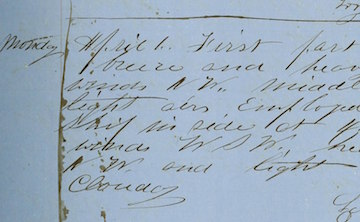 Monday April 1. First part
breeze and
winds N W., middle
light airs Employed
Ship in side at
winds W S W,
N. W. and light
Cloudy